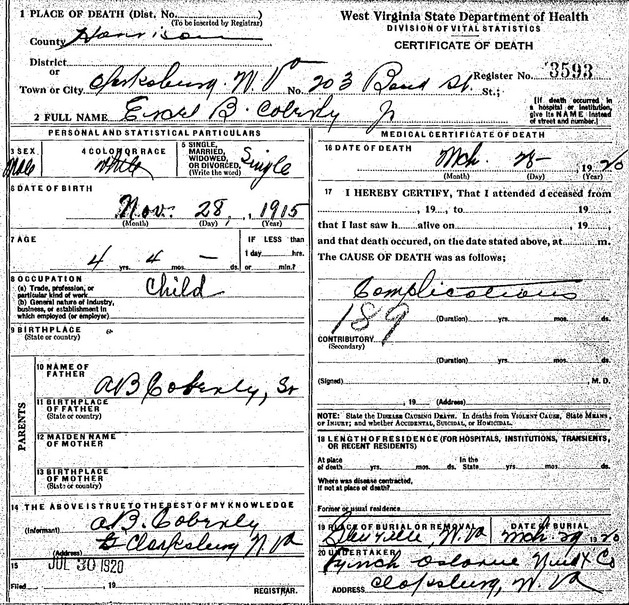 1 PLACE OF DEATH (Dist. No.
(To be inserted by Registrar)
County Harrison
District
or
Town or City Clarksburg, W. Va No. 203 Bond St.;
West Virginia State Department of Health
DIVISION OF VITAL STATISTICS
CERTIFICATE OF DEATH
Register No. 3593
[If death occurred in
a hospital or institution,
give its NAME instead
of street and number.]
2 FULL NAME B. Coberly Jr
PERSONAL AND STATISTICAL PARTICULARS
3 SEX
Male
4 COLOR OR RACE
White
5 SINGLE,
MARRIED,
WIDOWED,
OR DIVORCED
(Write the word)
Single
6 DATE OF BIRTH
Nov. 28, 1915
(Month) (Day) (Year)
7 AGE
4 yrs. 4 mos. — ds.
IF LESS than
1 day hrs.
or min.?
8 OCCUPATION
(a) Trade, profession, or
particular kind of work
(b) General nature of industry,
business, or establishment in
which employed (or employer)
Child
9 BIRTHPLACE
(State or country)
PARENTS
10 NAME OF
FATHER
A B Coberly, Sr
11 BIRTHPLACE
OF FATHER
(State or country)
12 MAIDEN NAME
OF MOTHER
13 BIRTHPLACE
OF MOTHER
(State or country)
14 THE ABOVE IS TRUE TO THE BEST OF MY KNOWLEDGE
(Informant) A. B. Coberly
(Address) Clarksburg W Va
15
JUL 30 1920
Filed , 19
REGISTRAR.
MEDICAL CERTIFICATE OF DEATH
16 DATE OF DEATH
Mch. 28- 1920
(Month) (Day) (Year)
17 I HEREBY CERTIFY, That I attended deceased from
, 19 , to , 19
that I last saw h alive on , 19
and that death occured, on the date stated above, at m.
The CAUSE OF DEATH was as follows;
Complications
189
(Duration) yrs. mos. ds.
CONTRIBUTORY
(Secondary)
(Duration) yrs. mos. ds.
(Signed) , M. D.
, 19 (Address)
NOTE: State the DISEASE CAUSING DEATH. In deaths from VIOLENT CAUSE, State MEANS
OF INJURY; and whether ACCIDENTAL, SUICIDAL, or HOMICIDAL.
18 LENGTH OF RESIDENCE (FOR HOSPITALS, INSTITUTIONS, TRANSIENTS,
OR RECENT RESIDENTS)
At place In the
of death yrs. mos. ds. State yrs. mos. ds.
Where was disease contracted,
if not at place of death?
Former or usual residence
19 PLACE OF BURIAL OR REMOVAL
DATE OF BURIAL
W. Va Mch. 29 1920
20 UNDERTAKER
Lynch Osborne Co
ADDRESS Clarksburg, W. Va